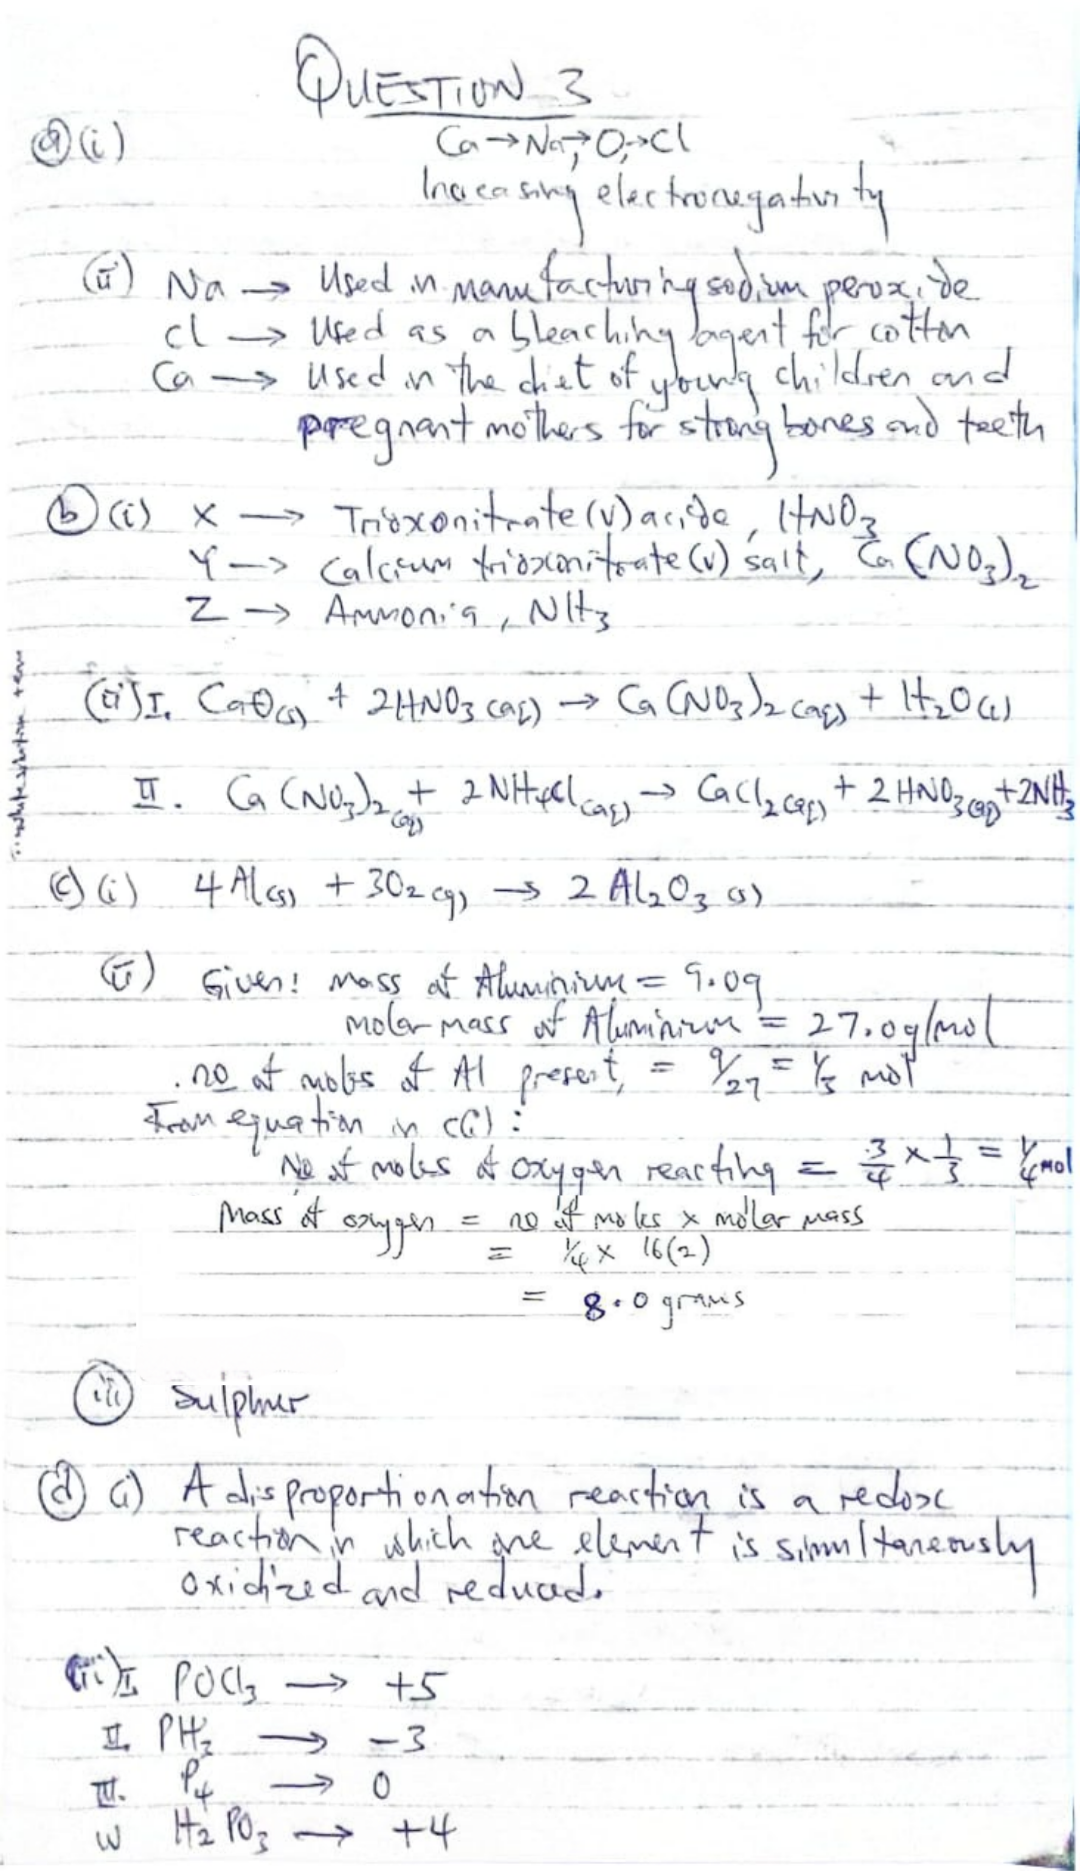 QUESTION 3
(a)(i) Ca→Na,→O,→Cl
Increasing electronegativity
(ii) Na → Used in manufacturing sodium peroxide
Cl → Used as a bleaching agent for cotton
Ca → Used in the diet of young children and
pregnant mothers for strong bones and teeth
(b)(i) X → Trioxonitrate(V) acide, HNO₃
Y → Calcium trioxonitrate(V) salt, Ca(NO₃)₂
Z → Ammonia, NH₃
(ii) I. CaO(s) + 2HNO₃(aq) → Ca(NO₃)₂(aq) + H₂O(l)
II. Ca(NO₃)₂(aq) + 2NH₄Cl(aq) → CaCl₂(aq) + 2HNO₃(aq) + 2NH₃
(c)(i) 4Al(s) + 3O₂(g) → 2Al₂O₃(s)
(ii) Given: mass of Aluminium = 9.0g
molar mass of Aluminium = 27.0g/mol
. no of moles of Al present, = 9/27 = 1/3 mol
From equation in c(i):
No of moles of oxygen reacting = 3/4 × 1/3 = 1/4 mol
Mass of oxygen = no of moles × molar mass
= 1/4 × 16(2)
= 8.0 grams
(iii) Sulphur
(d) (i) A disproportionation reaction is a redox
reaction in which one element is simultaneously
oxidized and reduced.
(ii) I. POCl₃ → +5
II. PH₃ → -3
III. P₄ → 0
IV H₂PO₃ → +4